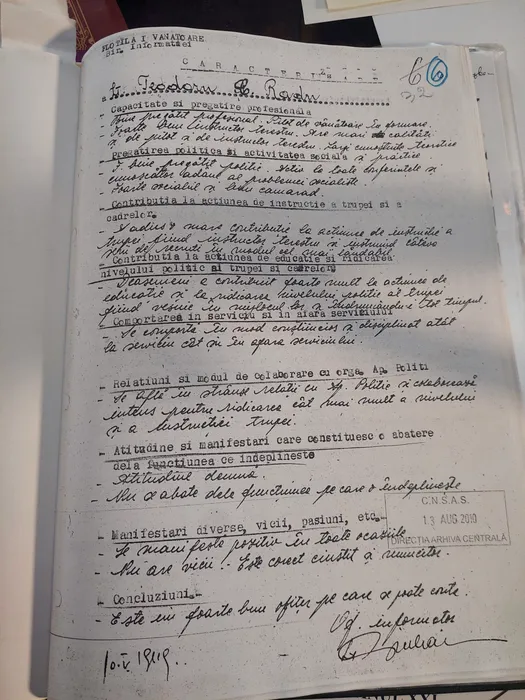 FLOTILA I VANATOARE
Bir. Informatiei
6 6
32
C A R A C T E R I Z A R E
a Lt. Teodoru C. Radu
- Capacitate si pregatire profesionala
- Bine pregătit profesional. Pilot de vânătoare în formare.
- Foarte bun instructor terestru. Are mari calități
și de pilot și de instructor terestru. Largi cunoștințe teoretice
și practice
Pregatirea politica si activitatea sociala
- F. bine pregătit politic. Activ la toate conferințele și
cunoscător al problemei socialiste
- Foarte sociabil și bun camarad.
- Contributia la actiunea de instructie a trupei si a
cadrelor.
- A adus o mare contribuție la acțiunea de instrucție a
trupei fiind instructor terestru și instruind câteva
serii de recruți în modul cel mai lăudabil
- Contributia la actiunea de educatie si ridicarea
nivelului politic al trupei si cadrelor
- Deasemeni a contribuit foarte mult la acțiunea de
educație și la ridicarea nivelului politic al trupei
fiind veșnic în mijlocul lor și îndrumându-i tot timpul.
- Comportarea in serviciu si in afara serviciului
- Se comportă în mod conștiincios și disciplinat atât
la serviciu cât și în afara serviciului.
- Relatiuni si modul de colaborare cu orga. Ap. Politi
- Se află în strânse relații cu Ap. Politic și colaborează
intens pentru ridicarea cât mai mult a nivelului
și a instrucției trupei.
- Atitudine si manifestari care constituesc o abatere
dela functiunea ce indeplineste
- Atitudine demnă.
- Nu se abate dela funcțiunea pe care o îndeplinește
- Manifestari diverse, vicii, pasiuni, etc.-
- Se manifestă pozitiv în toate ocaziile
- Nu are vicii. - Este corect cinstit și muncitor.
- Concluziuni.-
- Este un foarte bun ofițer pe care se poate conta.
Of. informator
10.V.1949.
C.N.S.A.S.
13 AUG 2010
DIRECȚIA ARHIVA CENTRALĂ